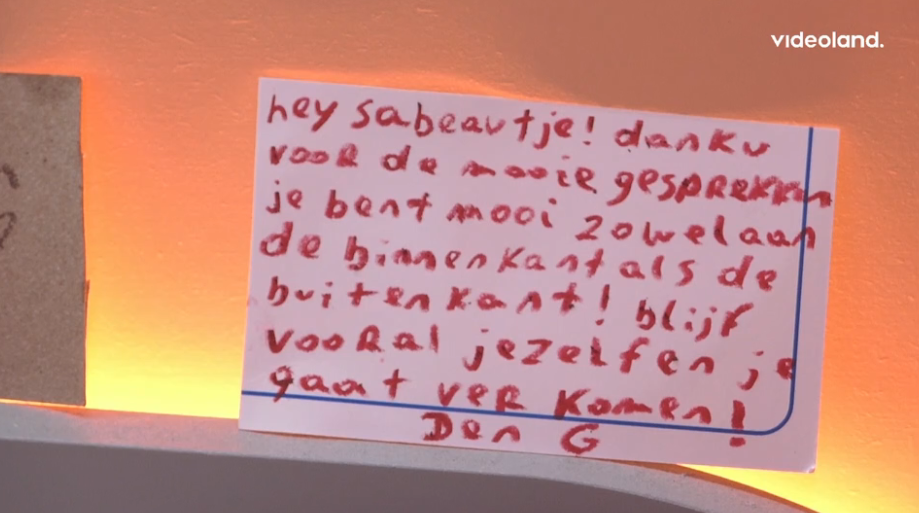 videoland.
hey sabeautje! danku
voor de mooie gesprekken
je bent mooi zowel aan
de binnenkant als de
buitenkant! blijf
vooral jezelf en je
gaat ver komen!
Den G